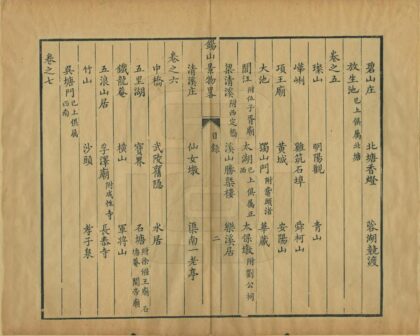 碧山莊 北塘香燈 蓉湖競渡
放生池 已上俱屬北塘
卷之五
璨山 明陽觀 青山
嶂嶼 雞籠石埠 舜柯山
項王廟 黃城 安陽山
大池 獨山門 附查頭渚 華藏
閭江 附伍子胥廟 太湖 已上俱屬正西 太保墩 附劉公祠
梁清溪 附西定橋 溪山勝槩樓 樂溪居
錫山景物畧 目錄 二
卷之六
清溪莊 仙女墩 梁南一老亭
中橋 武陵舊隱 水居
五里湖 寶界 石塘 附徐偃王廟 石塘菴 閶呑廟
鐵龍菴 橫山 軍將山
五浪山居 孚澤廟 附成性寺 長泰寺
竹山 沙頭 孝子泉
吳塘門 已上俱屬西南
卷之七